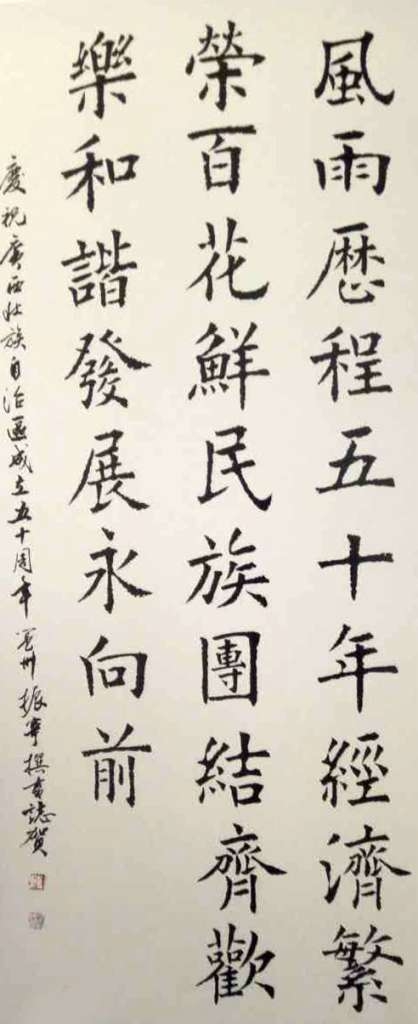 風雨歷程五十年經濟繁
榮百花鮮民族團結齊歡
樂和諧發展永向前
慶祝廣西壯族自治區成立五十周年 振寧撰書誌賀